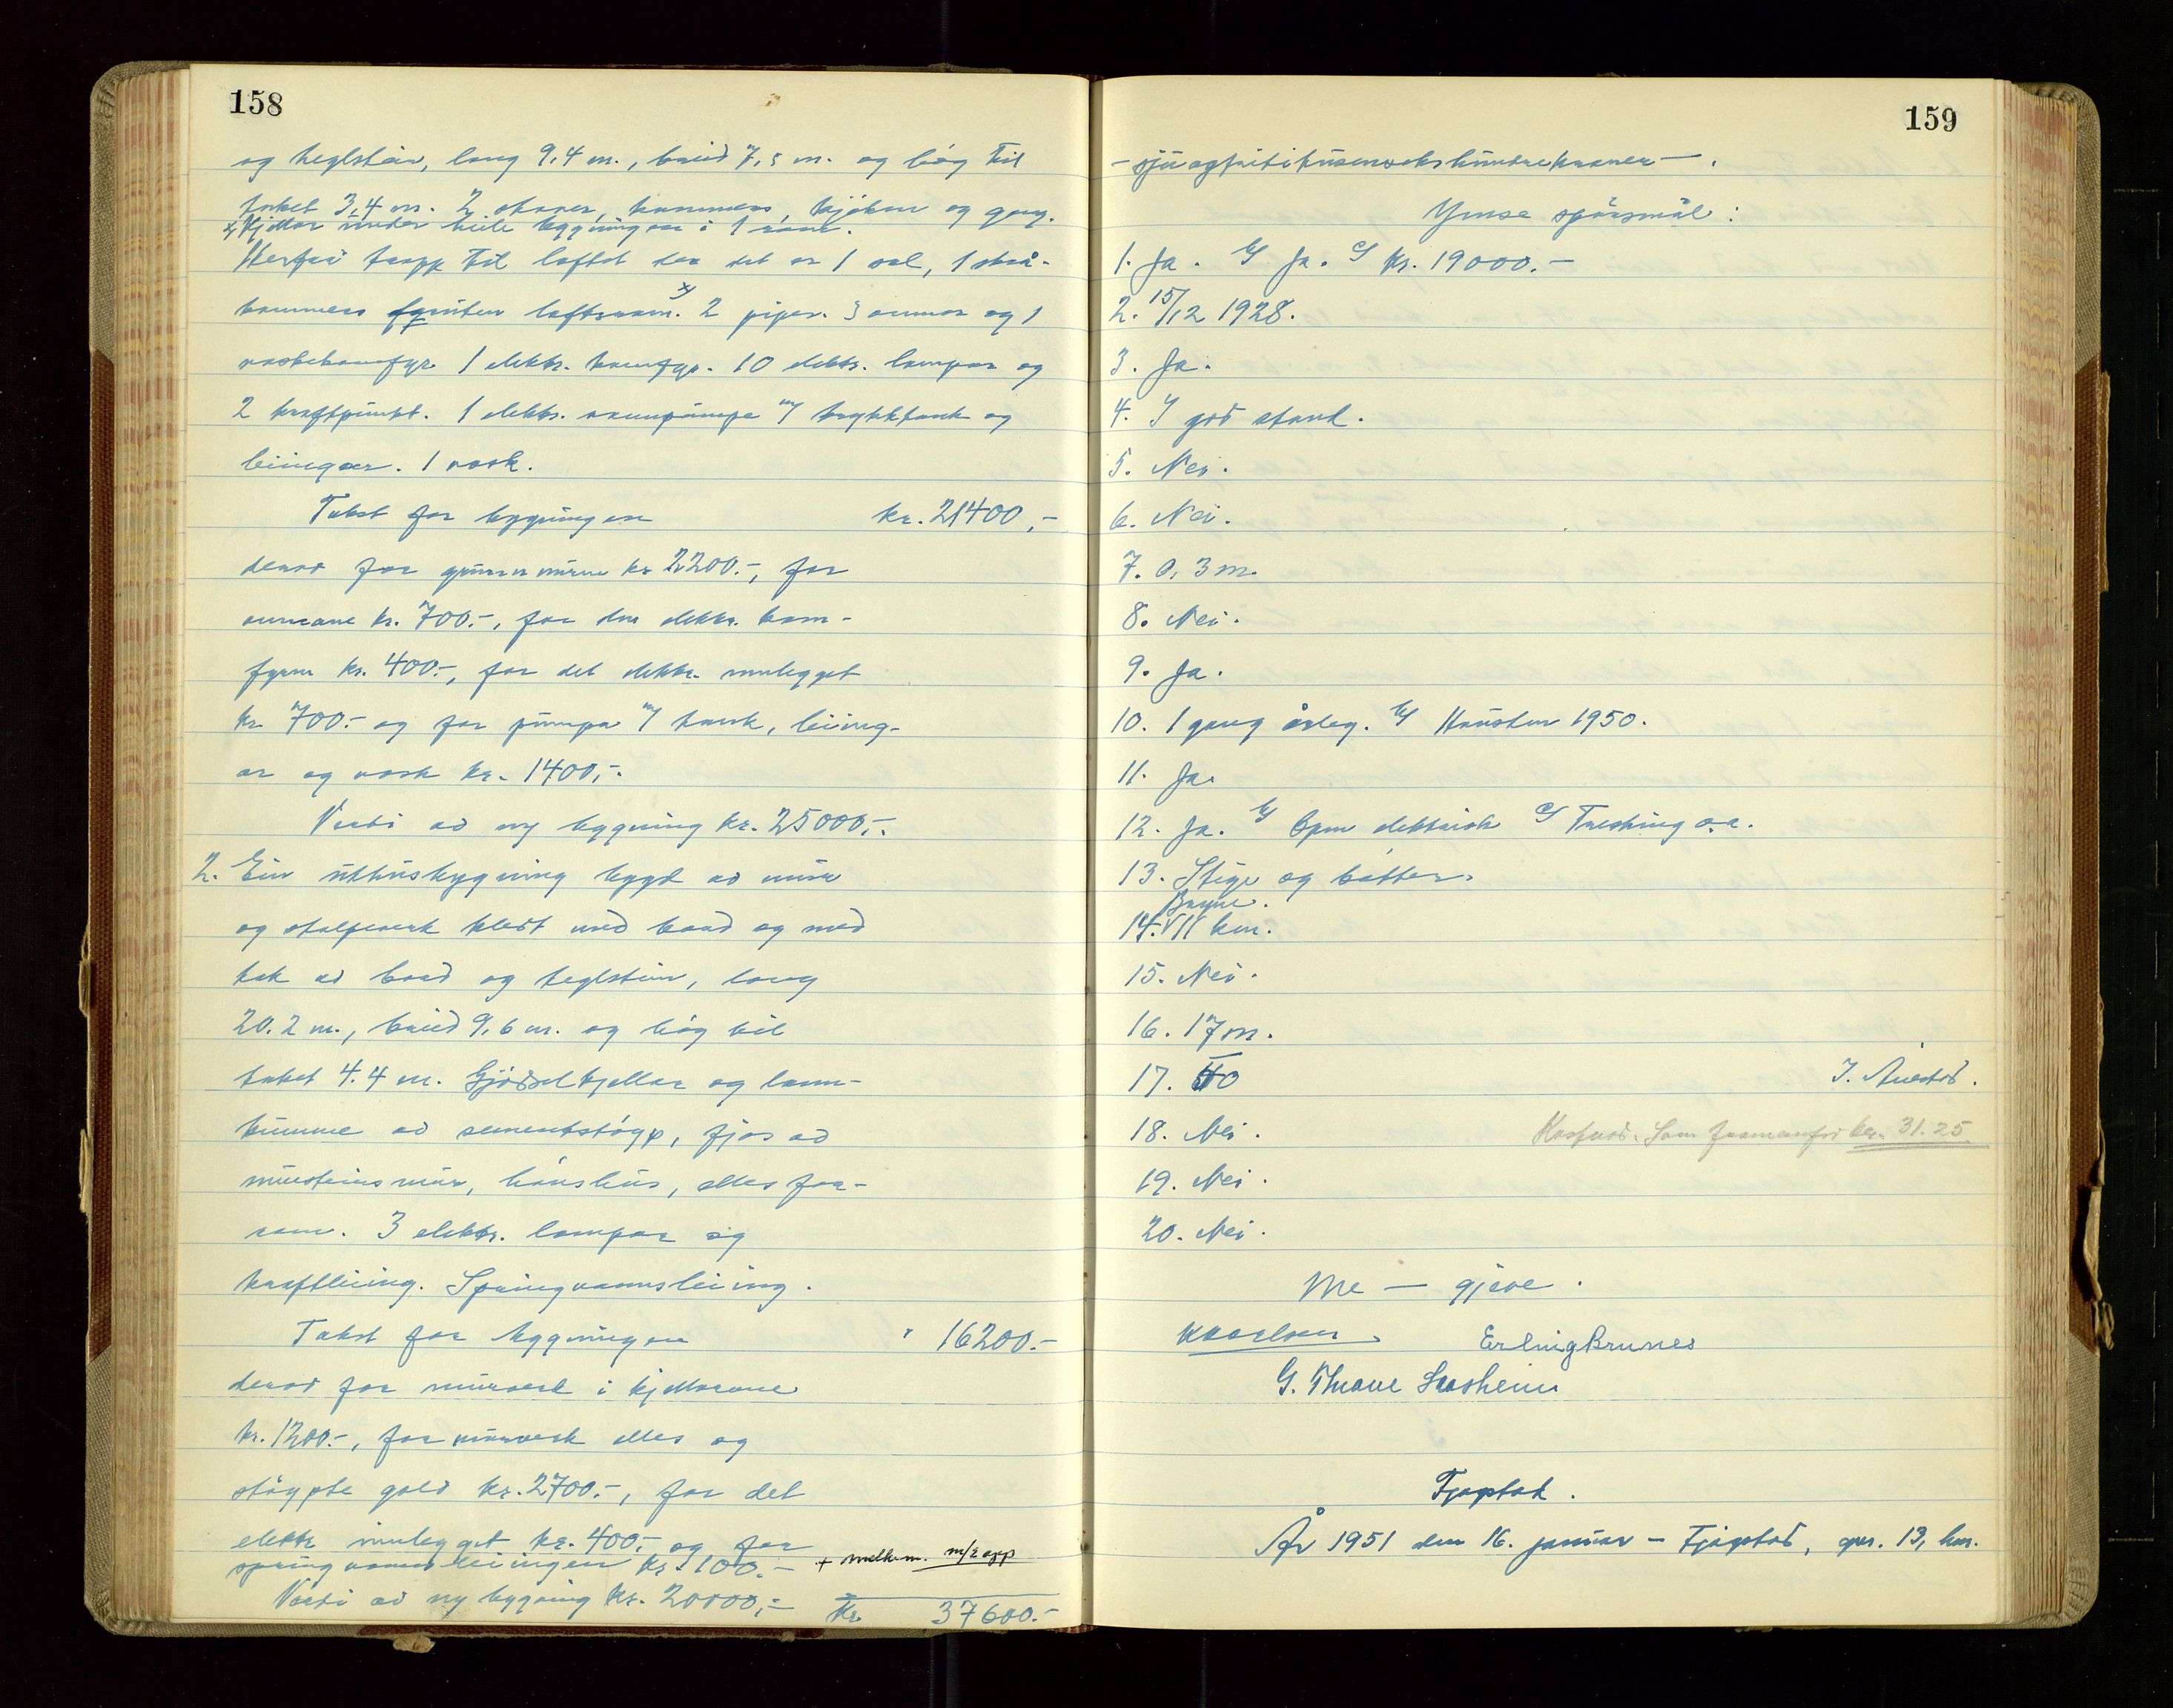 158
og teglstein, lang 9,4 m., breid 7,5 m. og høg til
taket 3,4 m. 2 stover, kammers, kjøken og gang.
x) Kjellar under heile bygningen i 1 rom.
Herfrå trapp til loftet der det er 1 sal, 1 små-
kammers foruten loftsrom. x) 2 piper. 3 omnar og 1
vaskekomfyr. 1 elektr. komfyr. 10 elektr. lampar og
2 kraftpunkt. 1 elektr. vannpumpe m/ trykktank og
leiingar. 1 vask.
Takst for bygningen kr. 21400,-
derav for grunnmuren kr 2200.-, for
omnane kr. 700.-, for den elektr. kom-
fyren kr. 400.-, for det elektr. innlegget
kr 700.- og for pumpa m/ tank, leiing-
ar og vask kr. 1400,-.
Verdi av ny bygning kr. 25000,-.
2. Ein uthusbygning bygt av mur
og stolpeverk kledt med bord og med
tak av bord og teglstein, lang
20.2 m., breid 9,6 m. og høg til
taket 4.4 m. Gjødselkjellar og land-
kumme av sementstøyp, fjos av
mursteinsmur, hønshus, elles for-
rom. 3 elektr. lampar og
kraftleiing. Springvannsleiing.
Takst for bygningen " 16200.-
derav for murverk i kjellarane
kr. 1200.-, for murverk elles og
støypte golv kr. 2700.-, for det
elektr innlegget kr. 400,- og for
springvannsleiingen kr. 100.- + melkem. m/r app
Verdi av ny bygning kr. 20000,- Kr 37600.-
159
- sjuogtrititusensekshundrekroner - .
Ymse spørsmål :
1. Ja. b/ Ja. c/ kr. 19000.-
2. 15/12 1928.
3. Ja.
4. I god stand.
5. Nei.
6. Nei.
7. 0,3 m.
8. Nei.
9. Ja.
10. 1 gang årleg. b/ Hausten 1950.
11. Ja.
12. Ja. b/ 6pm elektrisk c/ Treshing o.a.
13. Stige og bøtter.
Bryne.
14. V 11 km.
15. Nei.
16. 17 m.
17. II 0 I. Auestad.
18. Nei. kr. 31.25
19. Nei.
20. Nei.
Me - gjeve.
K Karlsen Erling Brunes
G. Thrane Laasheim
Fjogstad.
År 1951 den 16. januar - Fjogstad, gnr. 13, bnr.